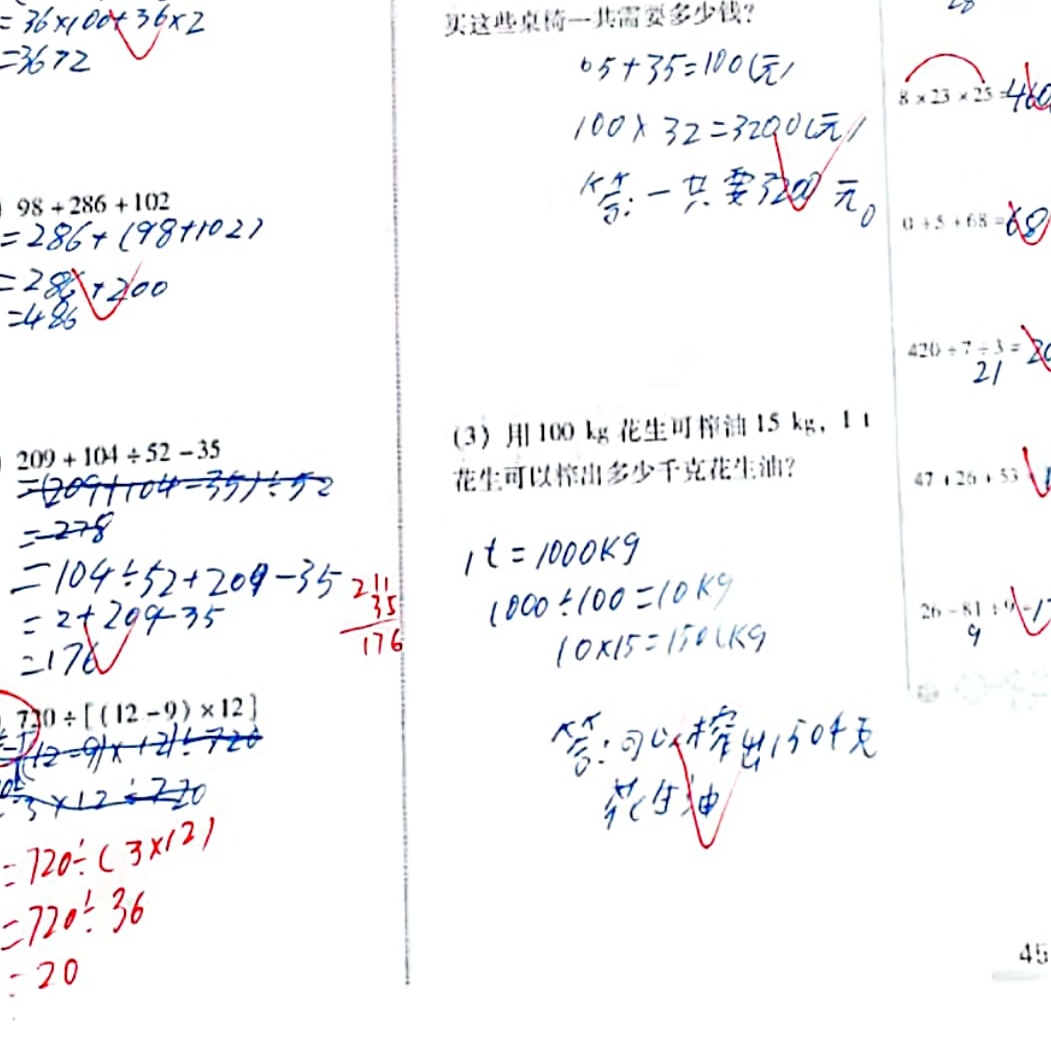 =36×100+36×2
=3672
98+286+102
=286+(98+102)
=286+200
=486
209+104÷52-35
=(209+104-35)÷52
=278
=104÷52+209-35
=2+209-35
=176
211
35
176
720÷[(12-9)×12]
=720÷(3×12)
=720÷36
=20
买这些桌椅一共需要多少钱?
65+35=100(元)
100×32=3200(元)
答:一共要3200元。
(3)用100 kg 花生可榨油15 kg,1 t
花生可以榨出多少千克花生油?
1t=1000Kg
1000÷100=10Kg
10×15=150(Kg
答:可以榨出150千克
花生油
8×23×25=460
0÷5+68=68
420÷7÷3=20
21
47+26+53
26-81÷9
9
45